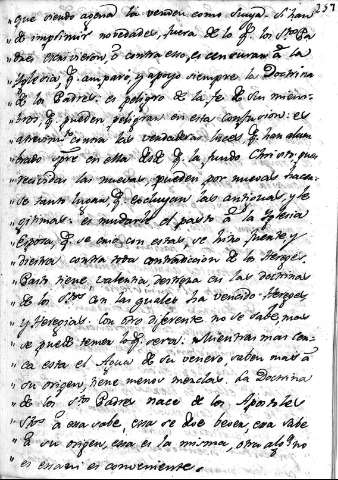 257
"que siendo agena la venden como suya. Si han
"de imprimir novedades, fuera de lo q. los Stos Pa
"dres escrivieron, o contra esso, es censurar a la
"Iglesia q. amparó, y apoyó siempre la Doctrina
"de los Padres. es peligro de la fe de sus miem-
"bros, q. pueden peligrar en esta confusion. es
contra las verdaderas luces q. han alum
"brado spre en ella desde q. la fundó Christo, que
"recividas las nuevas, pueden por nuevas hacer
"se tanto lugar, q. excluyan las antiguas, y le
"gitimas. es mudarle el pasto a la Iglesia
"Esposa, q. se crió con estas, se hizo fuerte, y
"diestra contra toda contradicion de los Hereges.
"Pasto tiene, valentia, destreza en las doctrinas
"de los Stos con las quales ha vencido Hereges,
"y Heregias. Con otro diferente no se sabe, mas
"se puede temer lo q. será. Mientras mas cer-
"ca esta el Agua de su venero, saben mas a
"su origen, tiene menos mezclas. La Doctrina
"de los Stos Padres nace de los Apostoles
"Stos a essa sabe, essa se deve beber, essa sabe
"a su origen, essa es la misma, otra algo no
"es essa ni es conveniente.